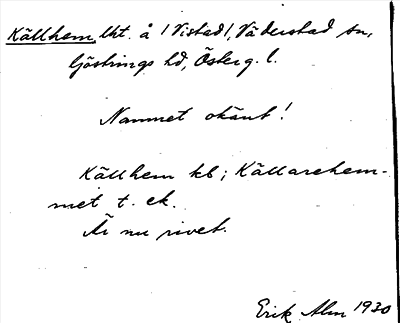 Källhem, lht. å (Vistad), Väderstad sn,
Göstrings hd, Österg. l.
Namnet okänt!
Källhem kb; Källarehem-
met t. ek.
Är nu rivet.
Erik Alm 1930